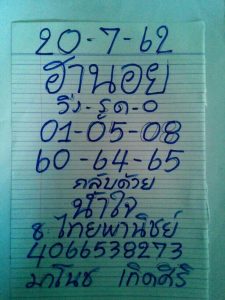 20-7-62
ฮานอย
วิ่ง-รูด-0
01-05-08
60-64-65
กลับด้วย
น้ำใจ
ธ.ไทยพานิชย์
4066538273
มาโนช เกิดศิริ